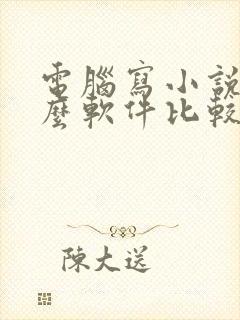 電腦寫小說
麼軟件比較
陳大送